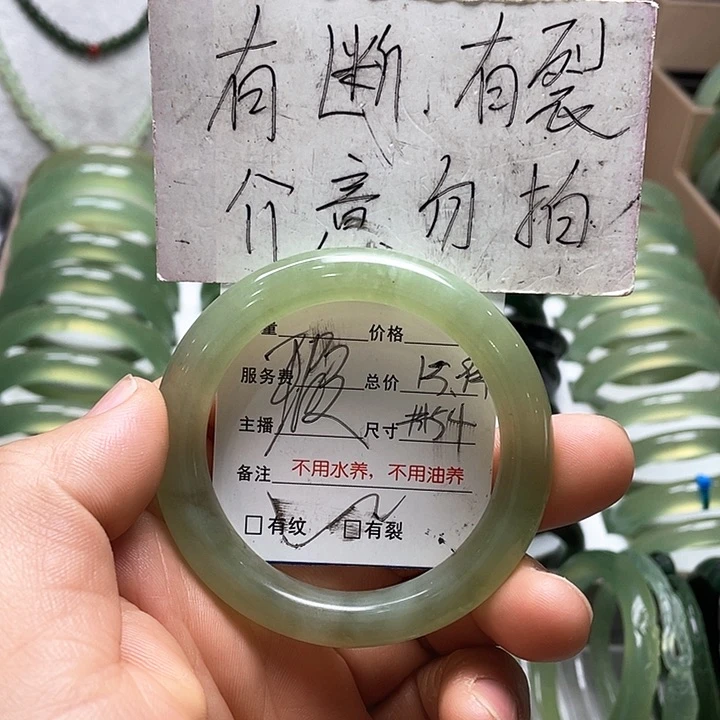 有断.有裂
介意勿拍
量 价格
服务费 总价
主播 尺寸 #54
备注 不用水养，不用油养
□有纹 □有裂